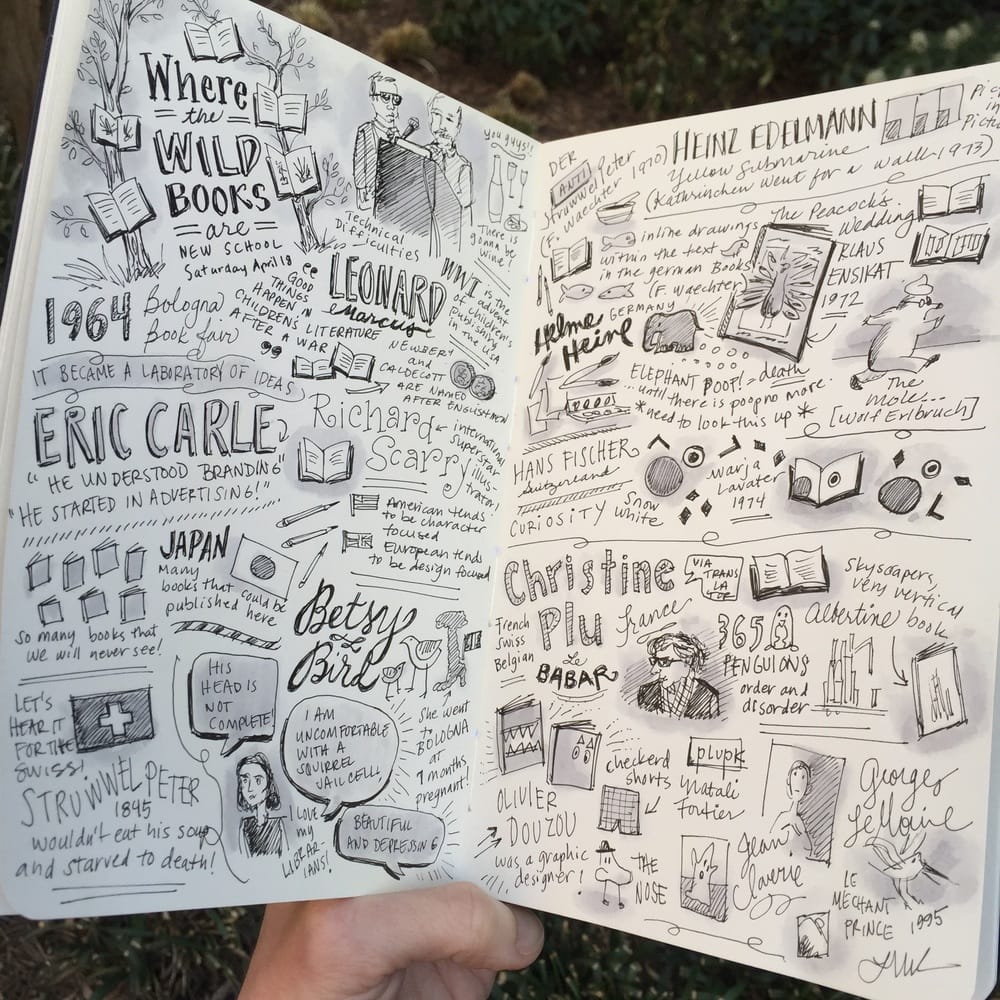 Where
the
WILD
BOOKS
are
NEW SCHOOL
Saturday April 18
you guys!!
Technical
Difficulties
There is
gonna be
wine!
1964
Bologna
Book fair
"GOOD
THINGS
HAPPEN IN
CHILDREN'S LITERATURE
AFTER
A WAR"
LEONARD
Marcus
WWI is the
advent
of children's
publishing
in the US
NEWBERY
and
CALDECOTT
ARE NAMED
AFTER ENGLISHMEN
IT BECAME A LABORATORY OF IDEAS
ERIC CARLE
"HE UNDERSTOOD BRANDING"
"HE STARTED IN ADVERTISING!"
Richard
Scarry
international
superstar
illustrator!
American tends
to be character
focused
European tends
to be design focused
JAPAN
Many
books that could be
published here
So many books that
we will never see!
Betsy
Bird
She went
to
BOLOGNA
at
9 months
pregnant!
LET'S
HEAR IT
FOR THE
SWISS!
HIS
HEAD IS
NOT
COMPLETE!
I AM
UNCOMFORTABLE
WITH A
SQUIRREL
JAIL CELL!
I LOVE
my
LIBRAR
IANS!
BEAUTIFUL
AND DEPRESSING
STRUWWELPETER
1845
wouldn't eat his soup
and starved to death!
DER
ANTI
Struwwelpeter
(F. Waechter 1970)
HEINZ EDELMANN
Yellow Submarine
(Kathrinchen went for a walk 1973)
inline drawings
within the text
in the german Books
(F. Waechter)
The Peacock's
Wedding
KLAUS
ENSIKAT
1972
Helme
Heine
GERMANY
ELEPHANT POOP! = death
...until there is poop no more.
*need to look this up*
The
mole...
[Wolf Erlbruch]
HANS FISCHER
Switzerland
CURIOSITY
Snow
White
Warja
Lavater
1974
Christine
Plu
VIA
TRANS
LA
TOR
france
French
Swiss
Belgian
Le
BABAR
365
PENGUIONS
order and
disorder
Skyscapers,
very vertical
Albertine book
OLIVIER
DOUZOU
was a graphic
designer!
checkerd
shorts
plupk
Natali
Fortier
THE
NOSE
Jean
Claverie
Georges
Lemoine
LE
MECHANT
PRINCE 1995